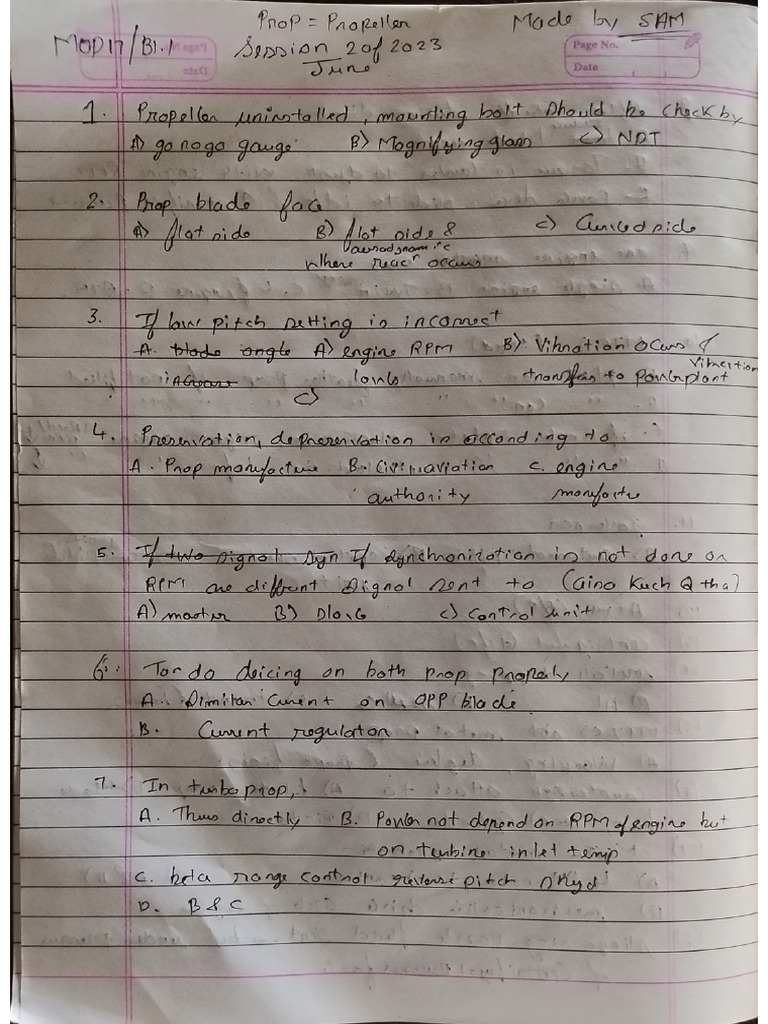 Prop = Propeller
Made by SAM
MOD17/B1.1
Session 2 of 2023
June
Page No.
Date
1. Propeller uninstalled, mounting bolt should be check by
A) go no go gauge B) Magnifying glass C) NDT
2. Prop blade face
A) flat side B) flat side & C) Curved side
aerodynamic
where reacn occurs
3. If low pitch setting is incorrect
A. blade angle A) engine RPM B) Vibration occurs &
increase low transfers to powerplant Vibration
C)
4. Preservation, depreservation is according to
A. Prop manufacture B. Civil aviation C. engine
authority manufactre
5. If two signal syn If synchronization is not done or
RPM are diffrent signal sent to (aisa kuch Q tha)
A) master B) slave C) control unit
6. To do deicing on both prop properly
A. Similar current on OPP blade
B. Current regulator
7. In turboprop,
A. Thrus directly B. Power not depend on RPM of engine but
on turbine inlet temp
C. beta range control reverse pitch
D. B & C